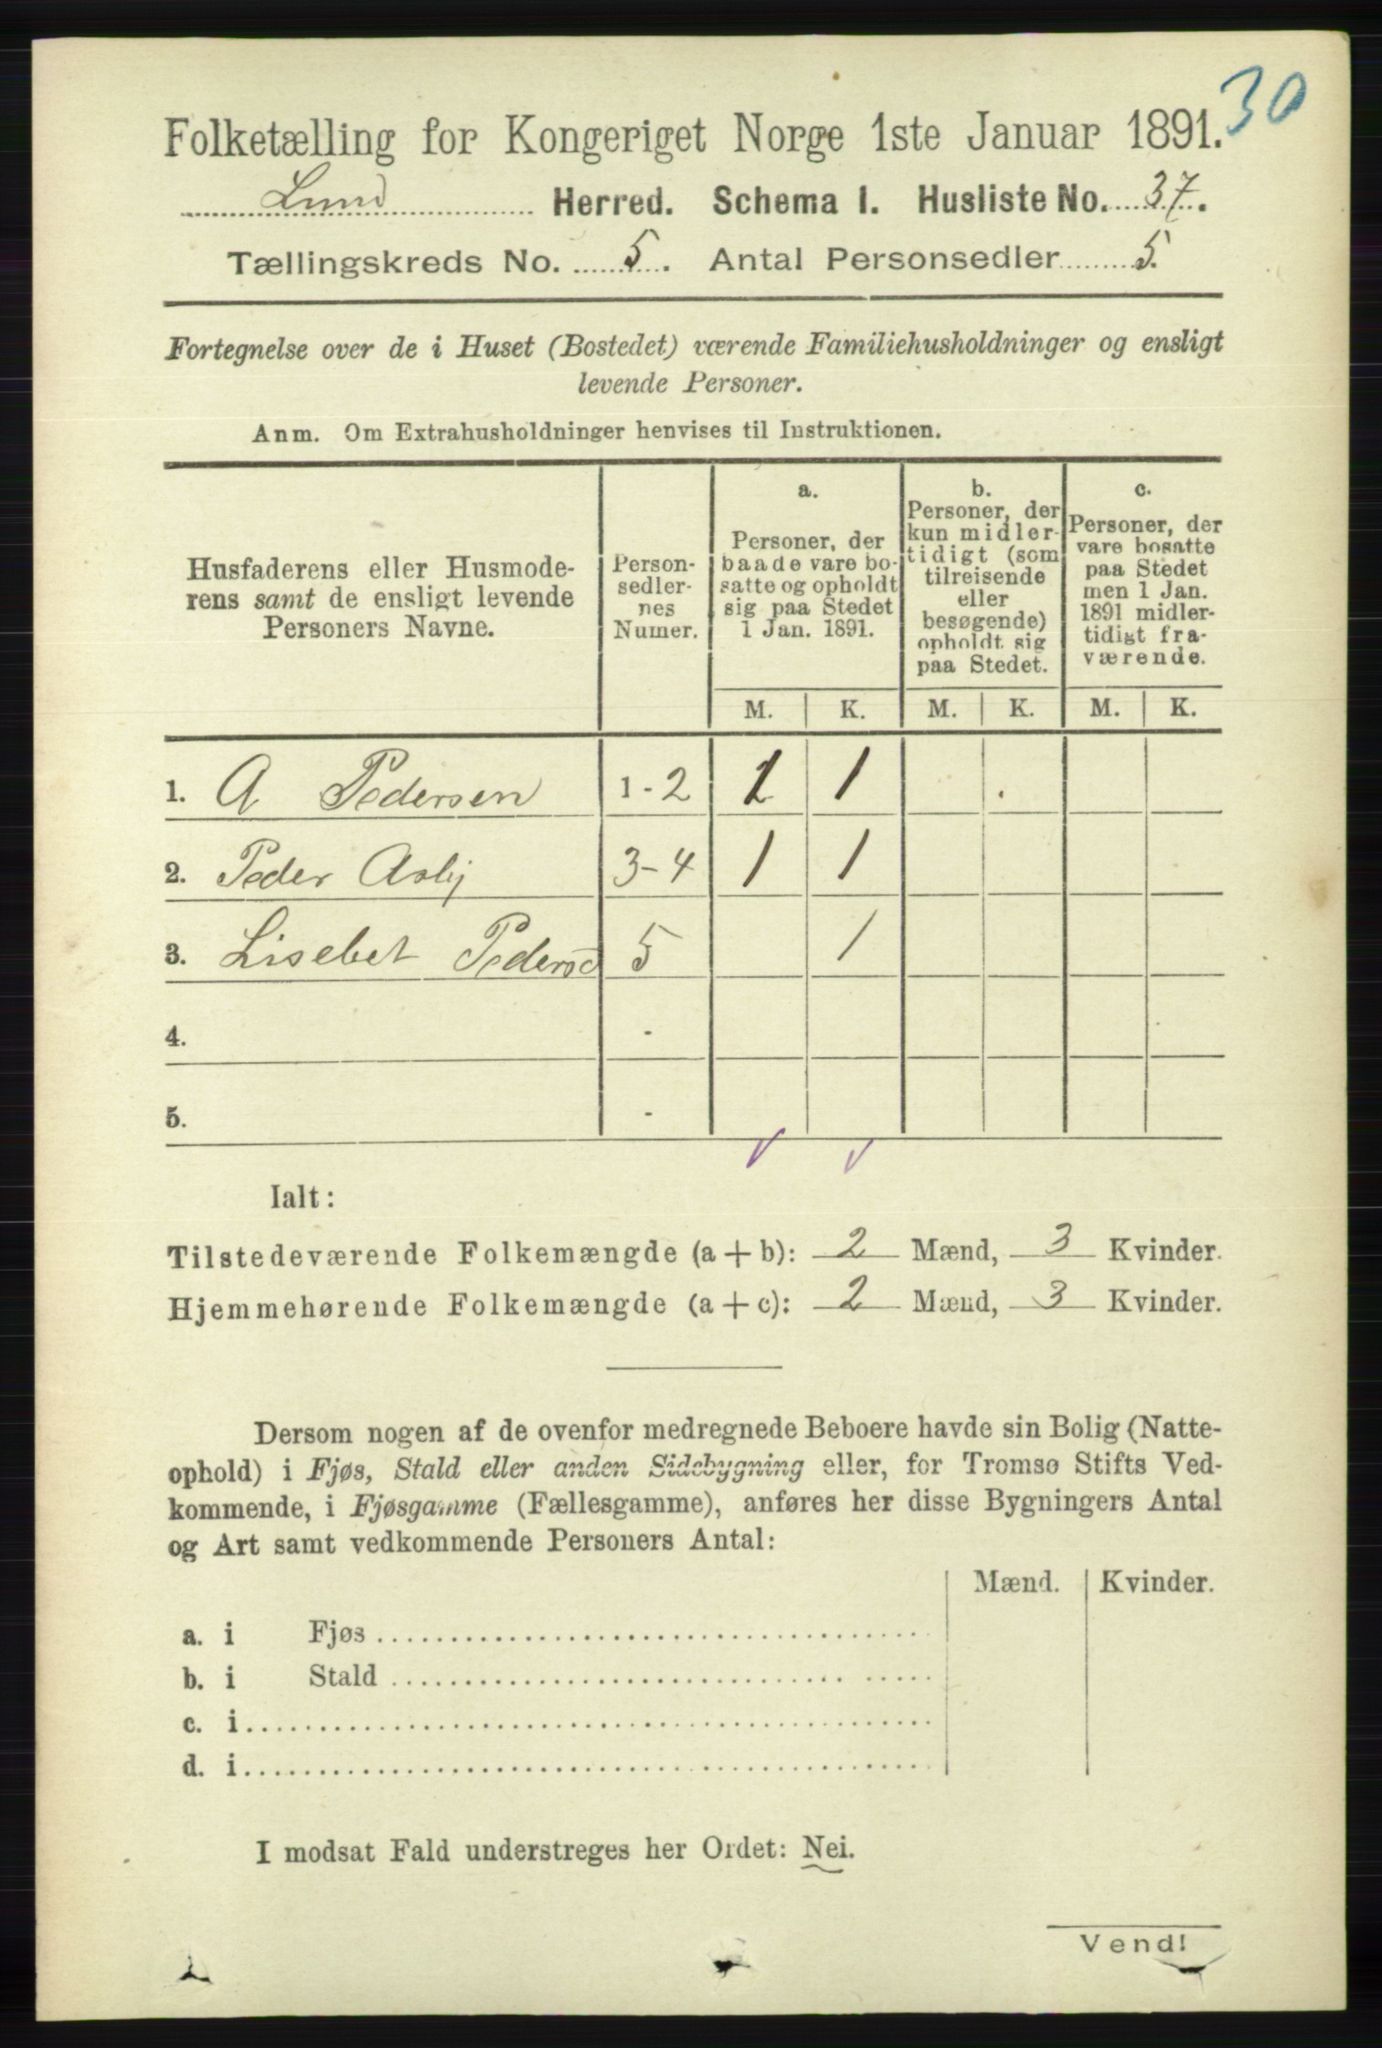 30
Folketælling for Kongeriget Norge 1ste Januar 1891.
Lund Herred. Schema I. Husliste No. 37.
Tællingskreds No. 5. Antal Personsedler 5.
Fortegnelse over de i Huset (Bostedet) værende Familiehusholdninger og ensligt
levende Personer.
Anm. Om Extrahusholdninger henvises til Instruktionen.
Husfaderens eller Husmode-
rens samt de ensligt levende
Personers Navne.
Person-
sedler-
nes
Numer.
a.
Personer, der
baade vare bo-
satte og opholdt
sig paa Stedet
1 Jan. 1891.
b.
Personer, der
kun midler-
tidigt (som
tilreisende
eller
besøgende)
opholdt sig
paa Stedet.
c.
Personer, der
vare bosatte
paa Stedet
men 1 Jan.
1891 midler-
tidigt fra-
værende.
M. K. M. K. M. K.
1. A Pedersen 1-2 1 1
2. Peder 3-4 1 1
3. Lisebet 5 1
4. -
5. -
Ialt:
Tilstedeværende Folkemængde (a + b): 2 Mænd, 3 Kvinder.
Hjemmehørende Folkemængde (a + c): 2 Mænd, 3 Kvinder.
Dersom nogen af de ovenfor medregnede Beboere havde sin Bolig (Natte-
ophold) i Fjøs, Stald eller anden Sidebygning eller, for Tromsø Stifts Ved-
kommende, i Fjøsgamme (Fællesgamme), anføres her disse Bygningers Antal
og Art samt vedkommende Personers Antal:
Mænd. Kvinder.
a. i Fjøs
b. i Stald
c. i
d. i
I modsat Fald understreges her Ordet: Nei.
Vend!